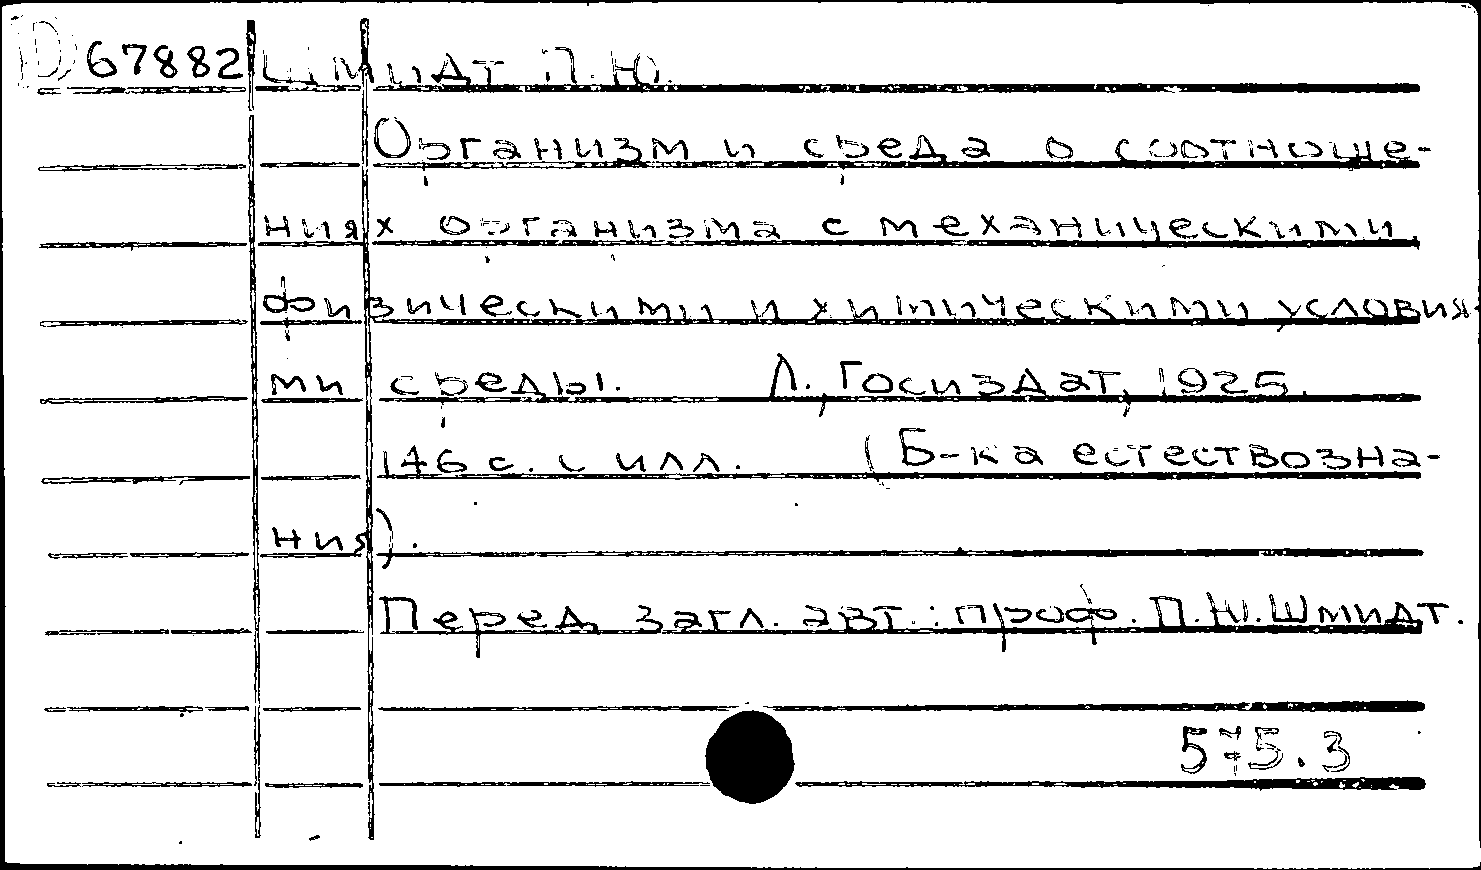 D 67882 Шмидт П.Ю.
Организм и среда о соотноше-
ниях организма с механическими,
физическими и химическими условия-
ми среды. Л., Госиздат, 1925.
146 с. с илл. (Б-ка естествозна-
ния).
Перед загл. авт.: проф. П.Ю. Шмидт.
575.3